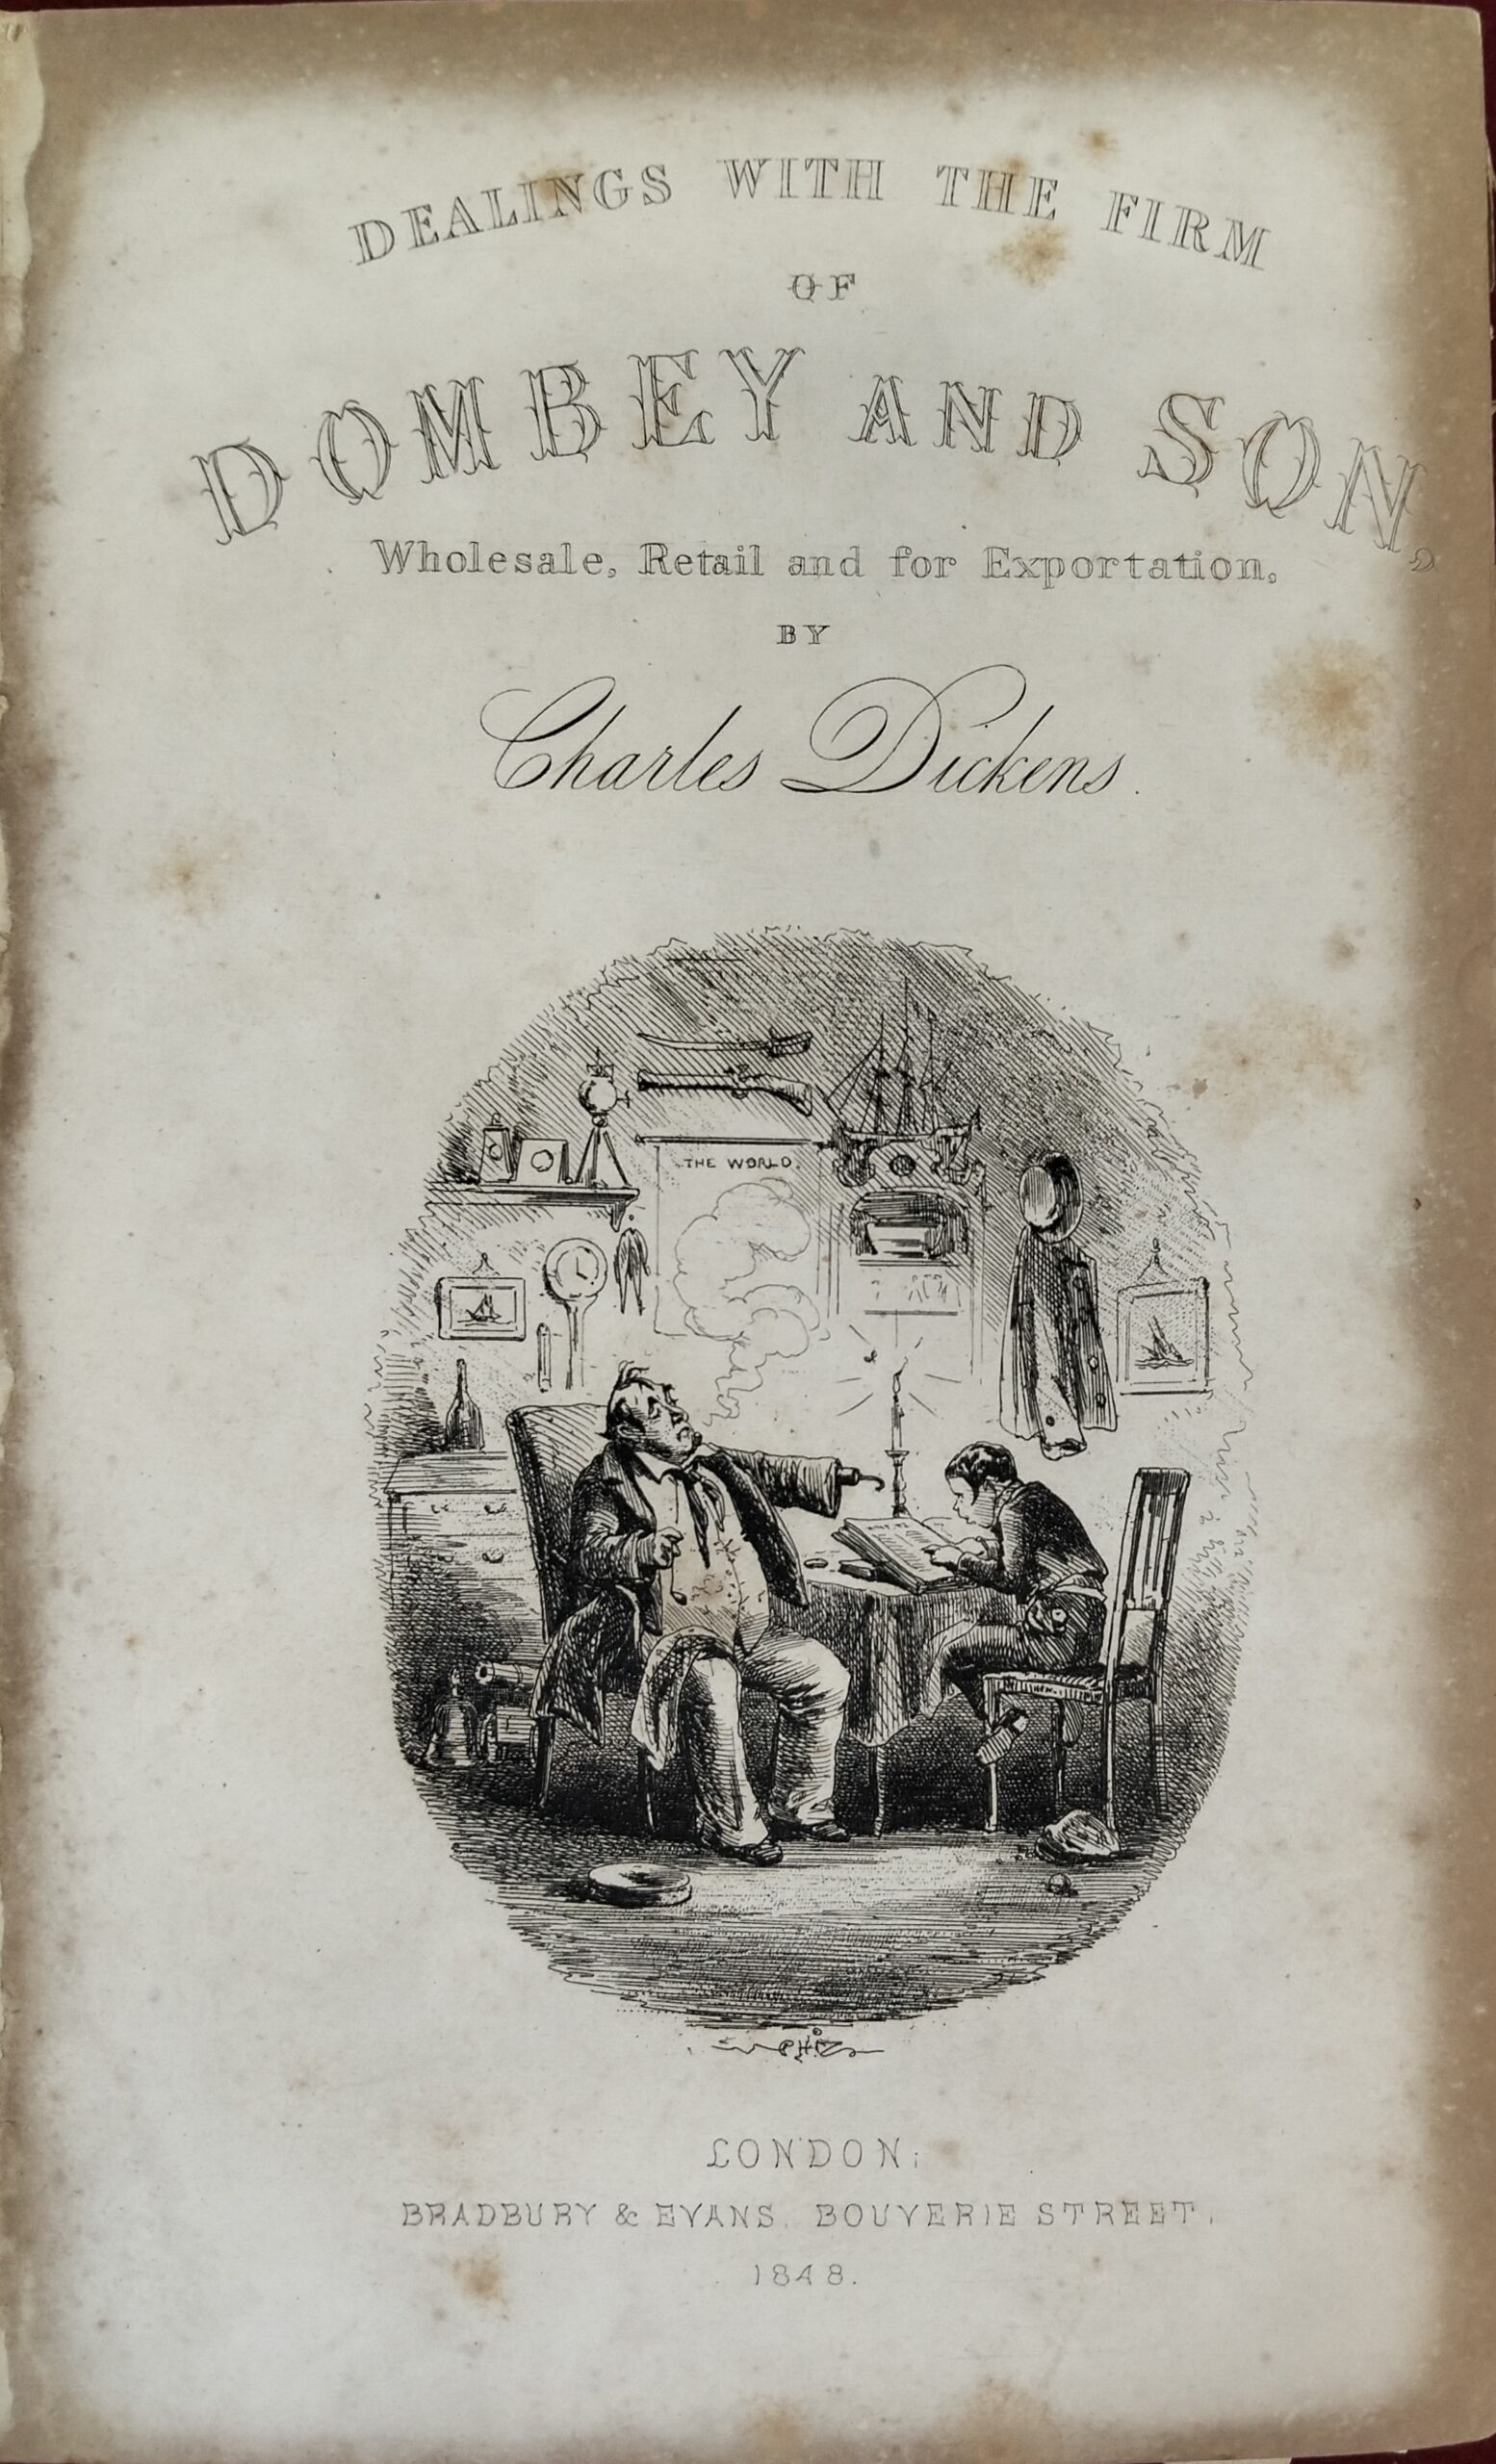 DEALINGS WITH THE FIRM
OF
DOMBEY AND SON,
Wholesale, Retail and for Exportation.
BY
Charles Dickens.
THE WORLD.
PHIZ
LONDON:
BRADBURY & EVANS, BOUVERIE STREET.
1848.